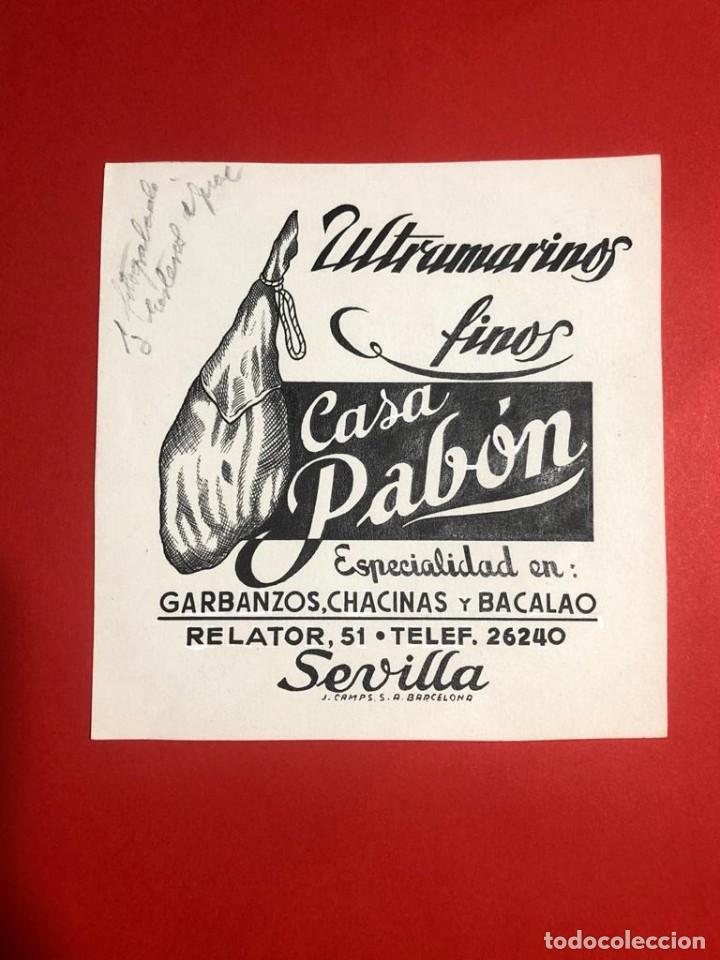 Ultramarinos
finos
Casa
Pabón
Especialidad en:
GARBANZOS, CHACINAS Y BACALAO
RELATOR, 51 • TELEF. 26240
Sevilla
J. CAMPS. S. A. BARCELONA
todocoleccion